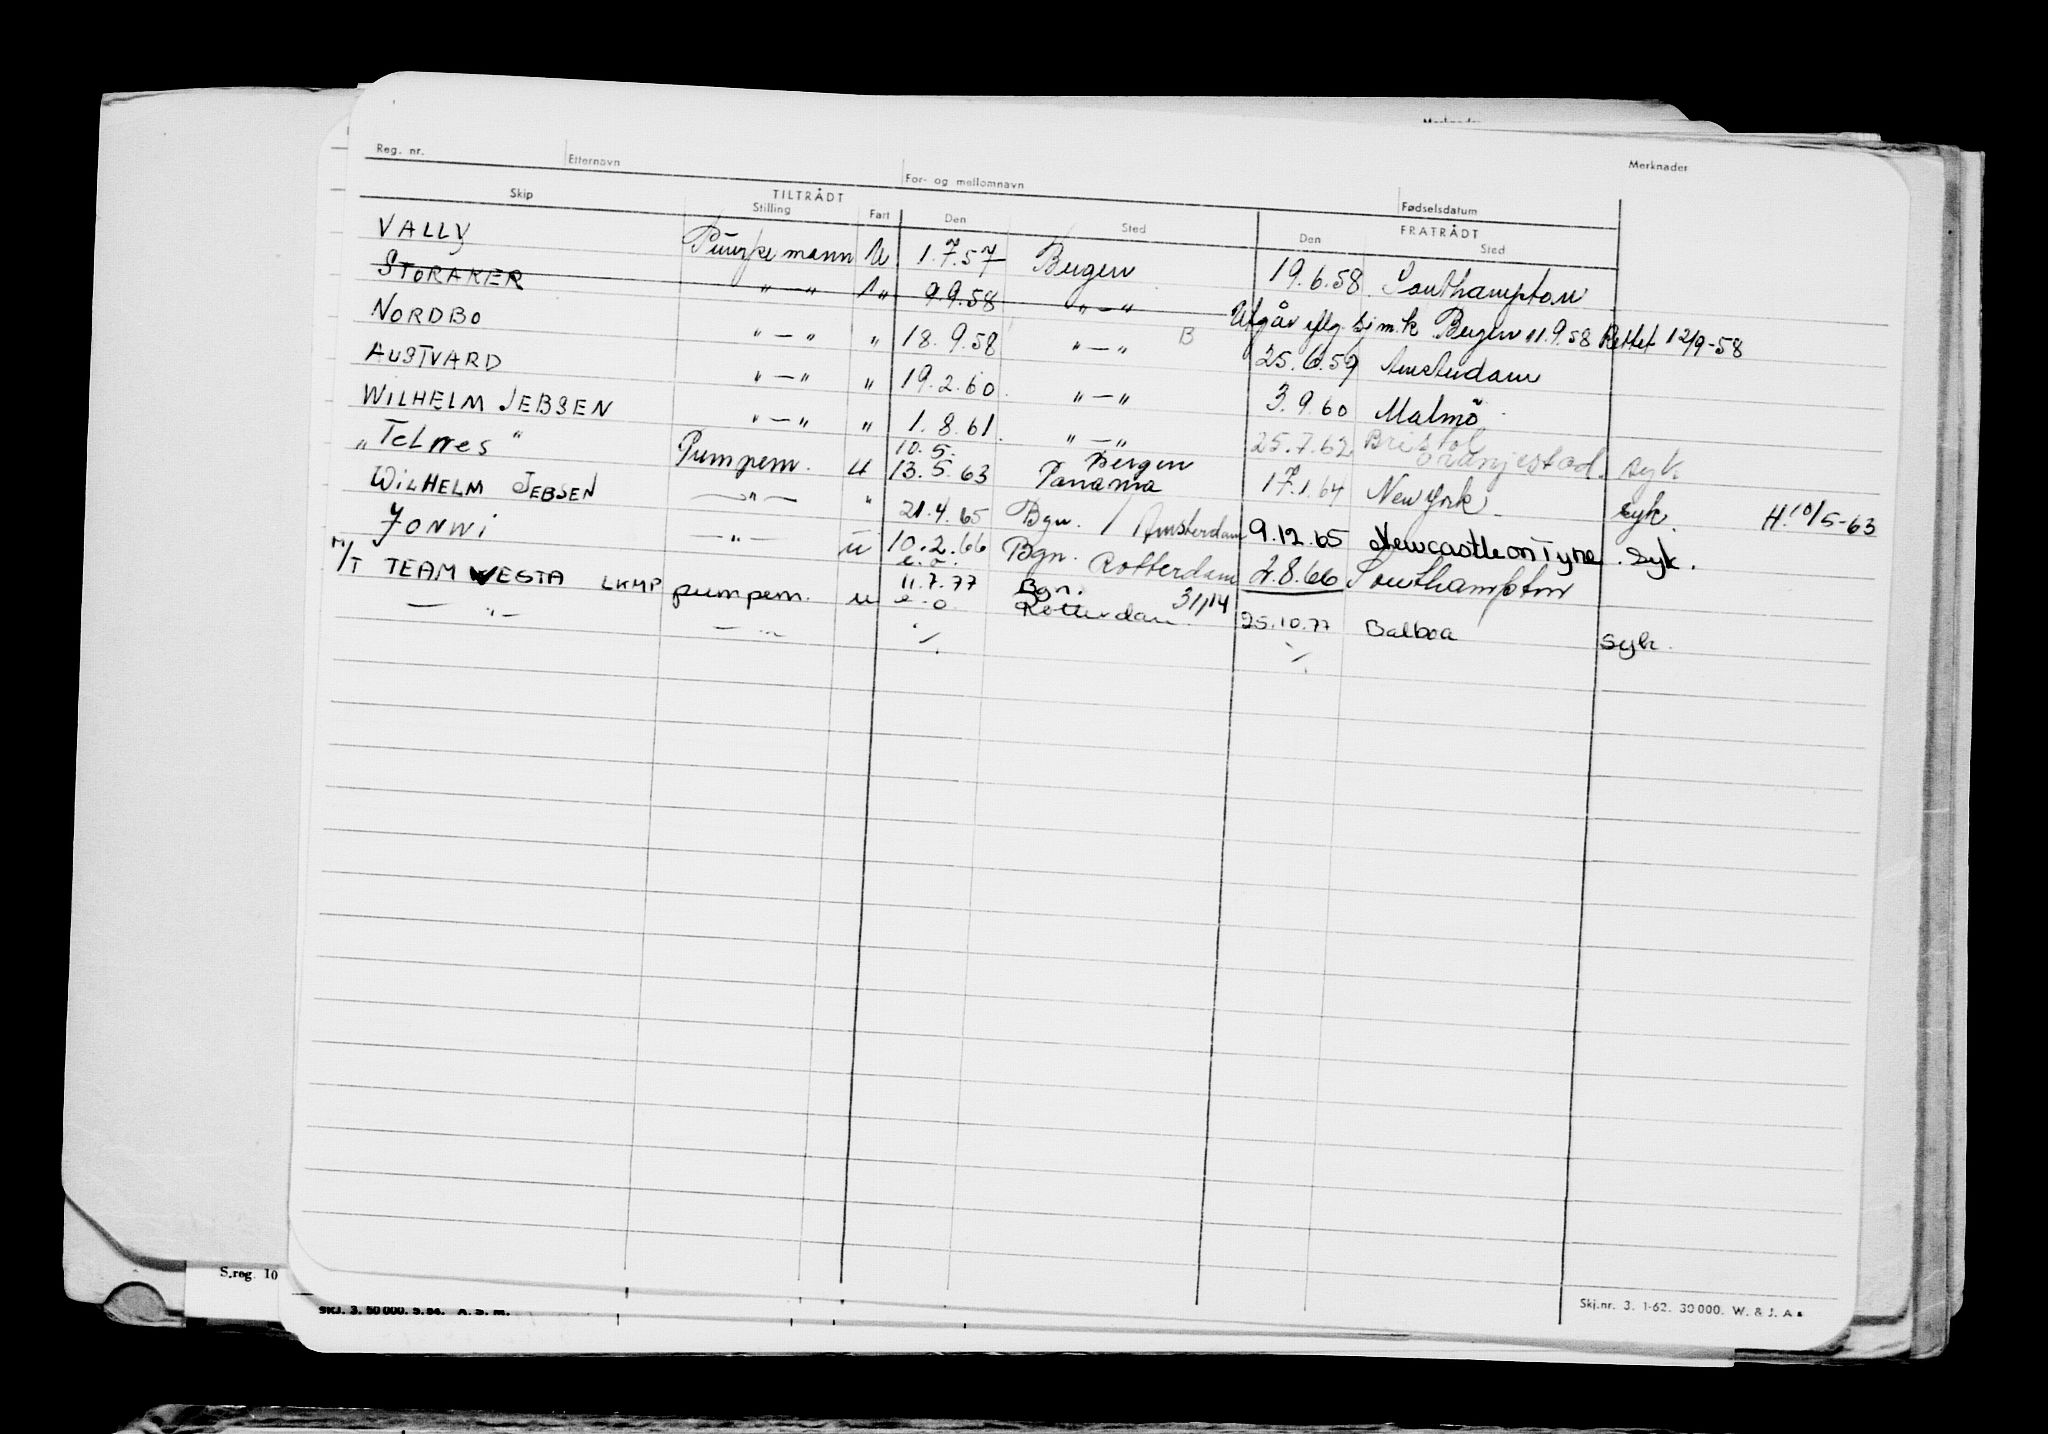 Merknader
Reg. nr. Etternavn For- og mellomnavn Fødselsdatum Merknader
TILTRÅDT FRATRÅDT
Skip Stilling Fart Den Sted Den Sted
VALLY Pumpemann U 1.7.57 Bergen 19.6.58 Southampton
STORAKER " — " " 9.9.58 " — " Utgår iflg. Bergen 11.9.58 Rettet 12/9-58
NORDBO " — " " 18.9.58 " — " B 25.6.59 Amsterdam
AUSTVARD " — " " 19.2.60 " — " 3.9.60 Malmö
WILHELM JEBSEN " — " " 1.8.61 " — " 25.7.62 Bristol
" Telnes " Pumpem. u 10.5. 13.5.63 Bergen Panama Oranjestad. syk
WILHELM JEBSEN — " — " 21.4.65 Bgn. / Amsterdam 17.1.64 New York syk. H.10/5-63
JONWI — " — u 10.2.66 Bgn. Rotterdam 9.12.65 Newcastle on Tyne. syk.
M/T TEAM VESTA LKMP pumpem. u 11.7.77 Bgn. 31/14 2.8.66 Southampton
— " — — " — Rotterdam 25.10.77 Balboa syk.
S.reg. 10
SKJ. 3. 50 000. 5.54. A. S. M.
Skj.nr. 3. 1-62. 30 000. W. & J. A s